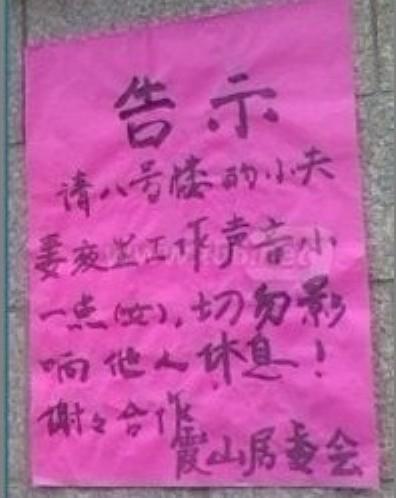 告示
请八号楼的小夫
妻夜里工作声音小
一点(女),切勿影
响他人休息!
谢々合作
霞山居委会